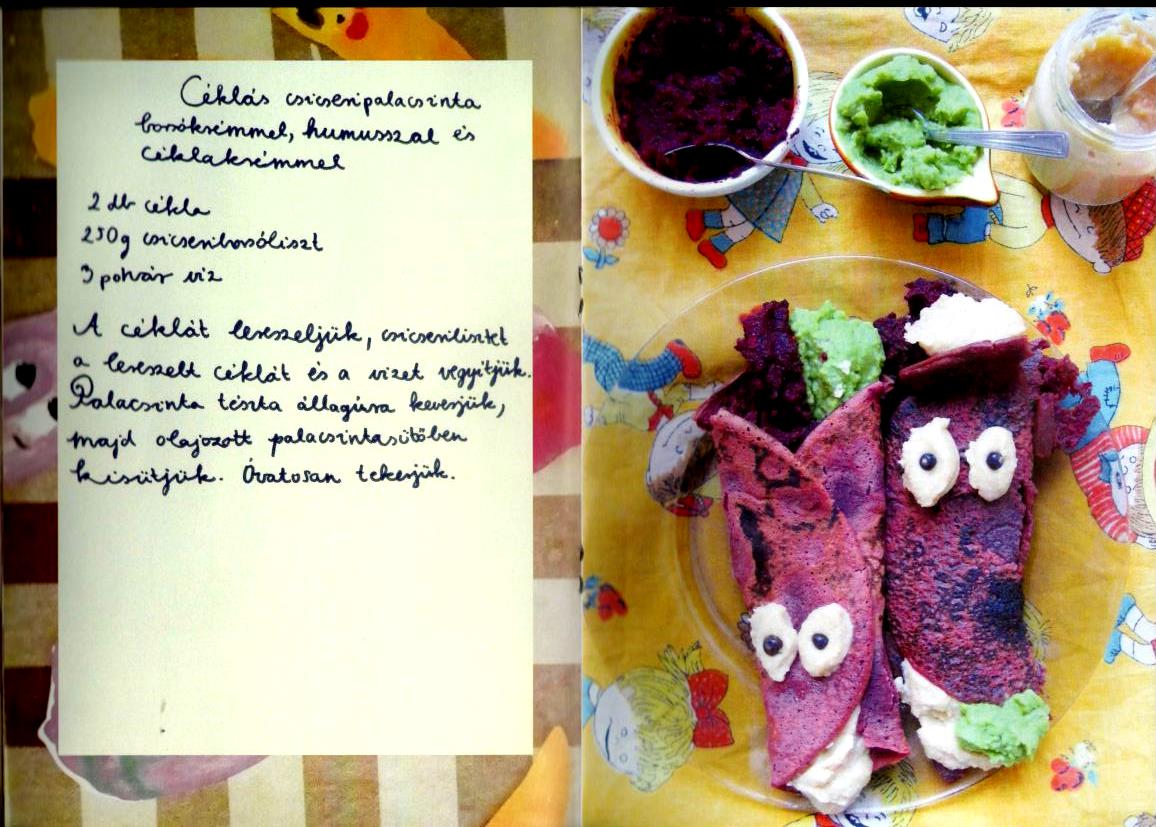 Céklás csicseripalacsinta
borsókrémmel, humusszal és
céklakrémmel
2 db cékla
250g csicseriborsóliszt
3 pohár víz
A céklát lereszeljük, csicserilisztet
a lereszelt céklát és a vizet vegyítjük.
Palacsinta tészta állagúra keverjük,
majd olajozott palacsintasütőben
kisütjük. Óvatosan tekerjük.